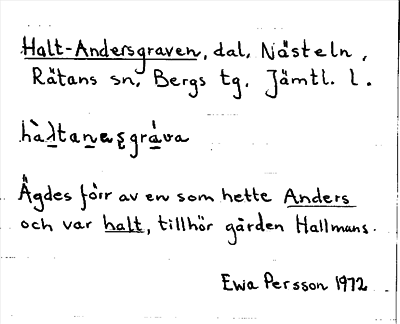 Halt-Andersgraven, dal, Nästeln,
Rätans sn, Bergs tg, Jämtl. l.
hàltanaşgráva
Ägdes förr av en som hette Anders
och var halt, tillhör gården Hallmans.
Ewa Persson 1972